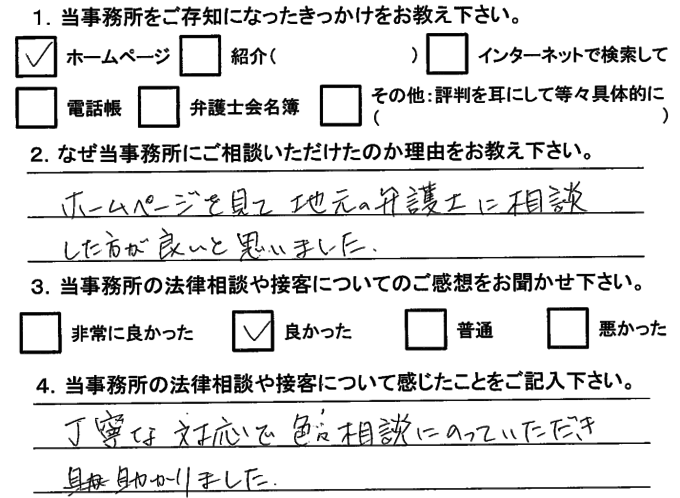 1. 当事務所をご存知になったきっかけをお教え下さい。
ホームページ 紹介( ) インターネットで検索して
電話帳 弁護士会名簿 その他:評判を耳にして等々具体的に
( )
2. なぜ当事務所にご相談いただけたのか理由をお教え下さい。
ホームページを見て地元の弁護士に相談
した方が良いと思いました.
3. 当事務所の法律相談や接客についてのご感想をお聞かせ下さい。
非常に良かった 良かった 普通 悪かった
4. 当事務所の法律相談や接客について感じたことをご記入下さい。
丁寧な対応で色々相談にのっていただき
助かりました.